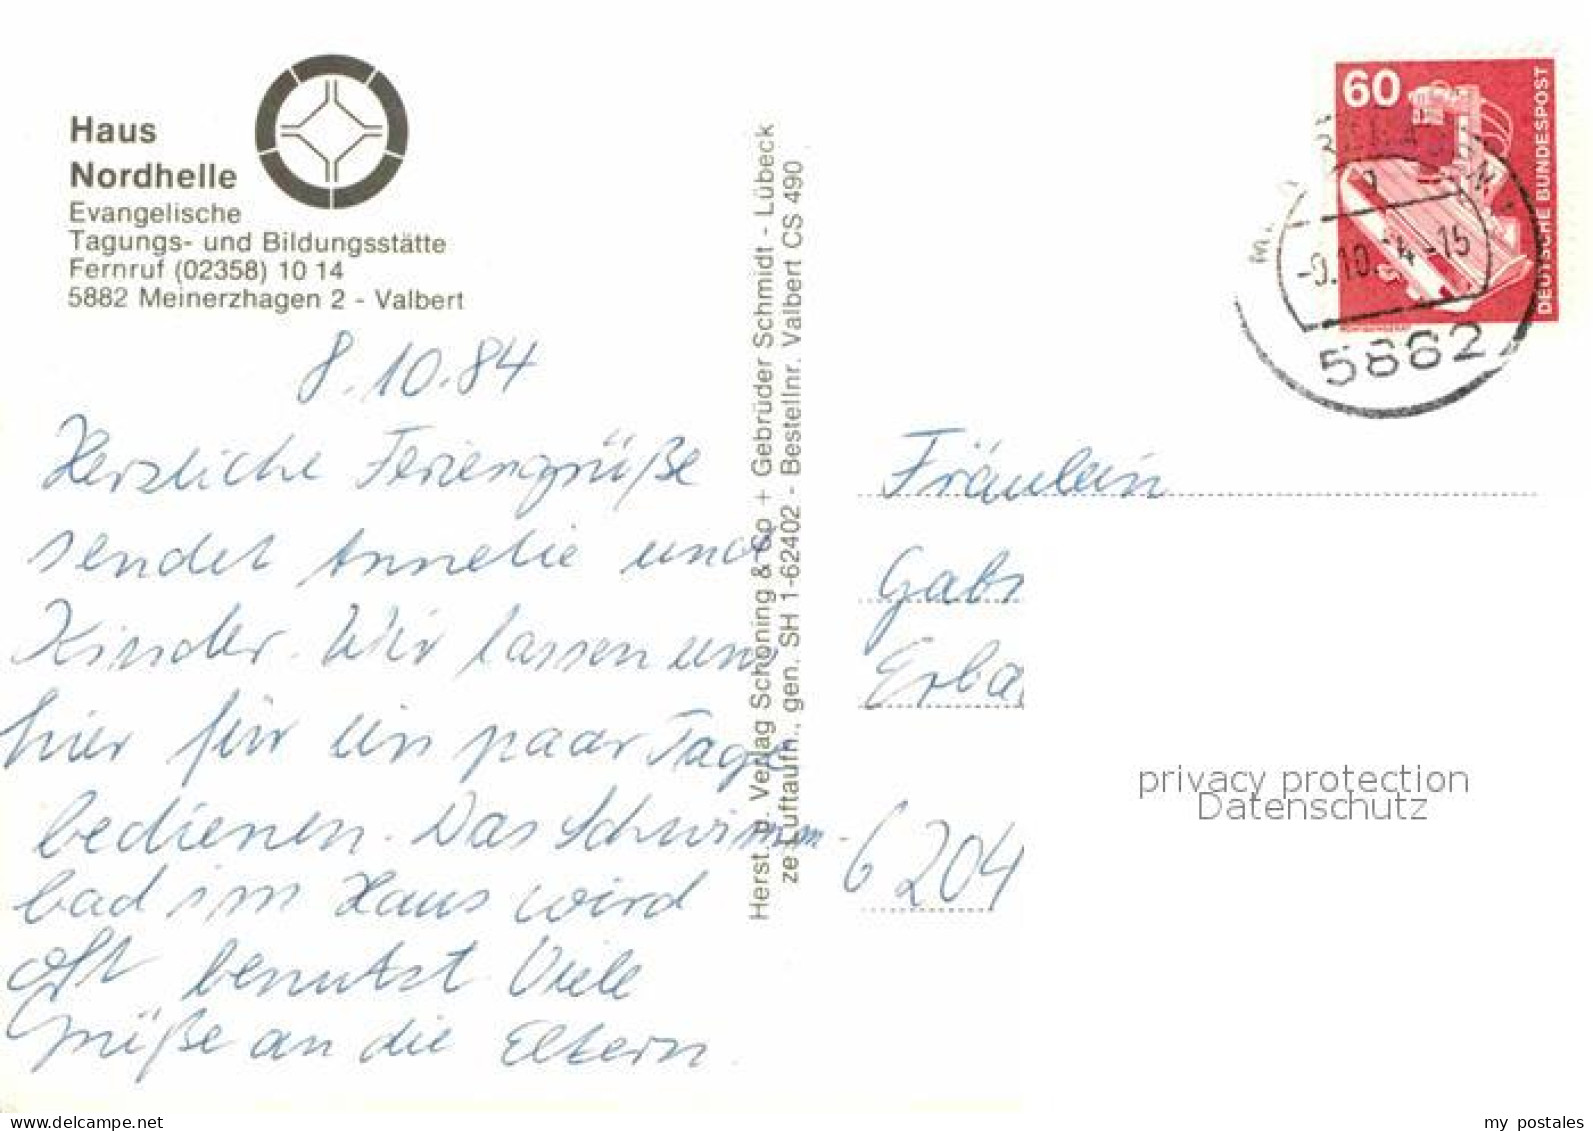 Haus
Nordhelle
Evangelische
Tagungs- und Bildungsstätte
Fernruf (02358) 10 14
5882 Meinerzhagen 2 - Valbert
8.10.84
Herzliche Feriengrüße
sendet Annelie und
Kinder. Wir lassen uns
hier für ein paar Tage
bedienen. Das Schwimm-
bad im Haus wird
oft benutzt. Viele
Grüße an die Eltern.
Herst. u. Verlag Schöning & Co + Gebrüder Schmidt - Lübeck
ze Luftaufn., gen. SH 1-62402 - Bestellnr. Valbert CS 490
60
DEUTSCHE BUNDESPOST
-9.10.84-15
5882
Fräulein
Gabr
Erba
6204
privacy protection
Datenschutz
www.delcampe.net
my_postales